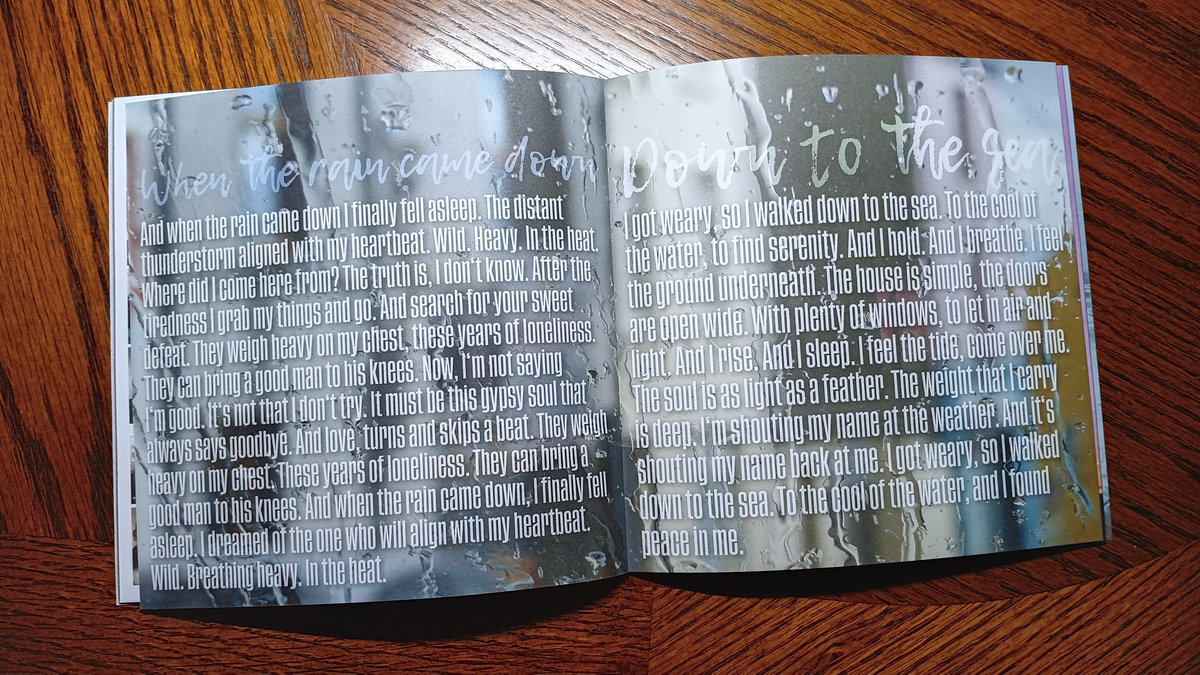 When the rain came down
And when the rain came down I finally fell asleep. The distant
thunderstorm aligned with my heartbeat. Wild. Heavy. In the heat.
Where did I come here from? The truth is, I don't know. After the
tiredness I grab my things and go. And search for your sweet
defeat. They weigh heavy on my chest, these years of loneliness.
They can bring a good man to his knees. Now, I'm not saying
I'm good. It's not that I don't try. It must be this gypsy soul that
always says goodbye. And love, turns and skips a beat. They weigh
heavy on my chest. These years of loneliness. They can bring a
good man to his knees. And when the rain came down, I finally fell
asleep. I dreamed of the one who will align with my heartbeat.
Wild. Breathing heavy. In the heat.
Down to the sea
I got weary, so I walked down to the sea. To the cool of
the water, to find serenity. And I hold. And I breathe. I feel
the ground underneath. The house is simple, the doors
are open wide. With plenty of windows, to let in air and
light. And I rise. And I sleep. I feel the tide, come over me.
The soul is as light as a feather. The weight that I carry
is deep. I'm shouting my name at the weather. And it's
shouting my name back at me. I got weary, so I walked
down to the sea. To the cool of the water, and I found
peace in me.